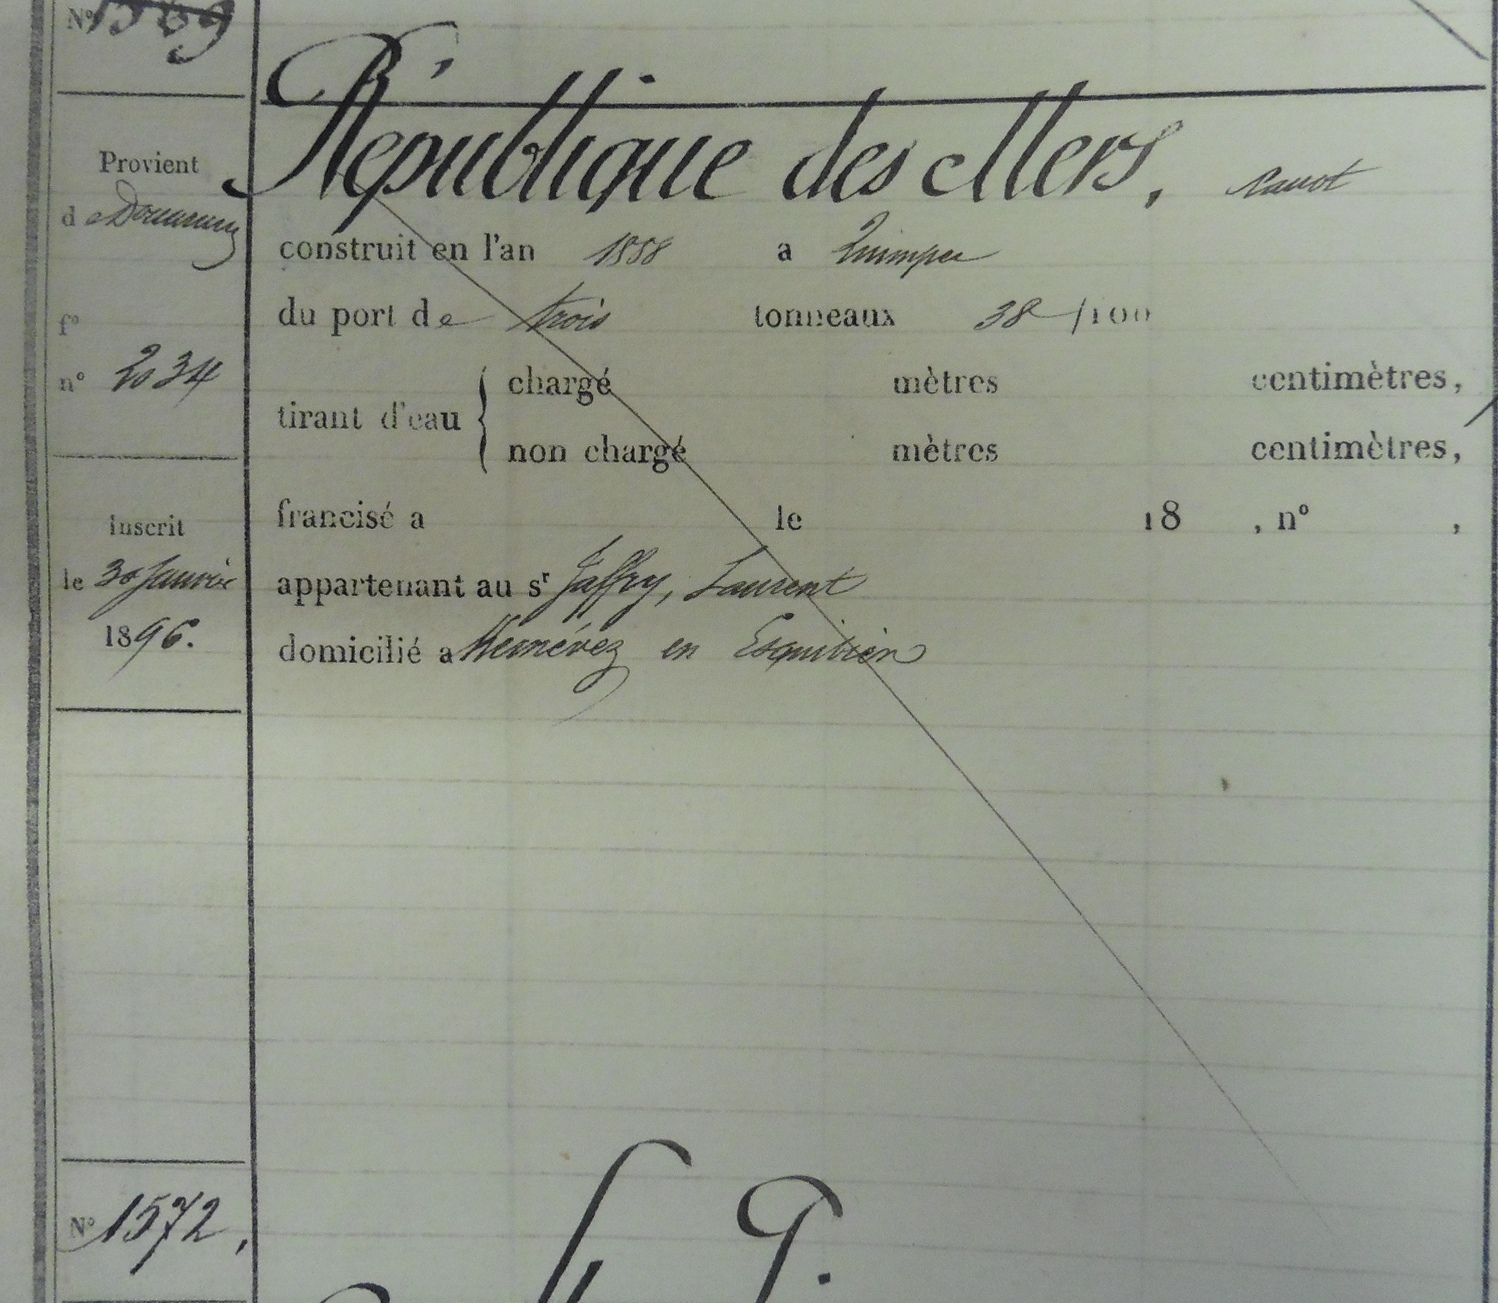 N° 1569
République des Mers, canot
Provient
de Douarnenez
f°
n° 2034
construit en l'an 1888 a Quimper
du port de trois tonneaux 38/100
tirant d'eau { chargé mètres centimètres,
non chargé mètres centimètres,
Inscrit
le 30 Janvier
1896.
francisé a le 18 , n° ,
appartenant au sr Jaffry, Laurent
domicilié a Kernévez en Esquibien
N° 1572,